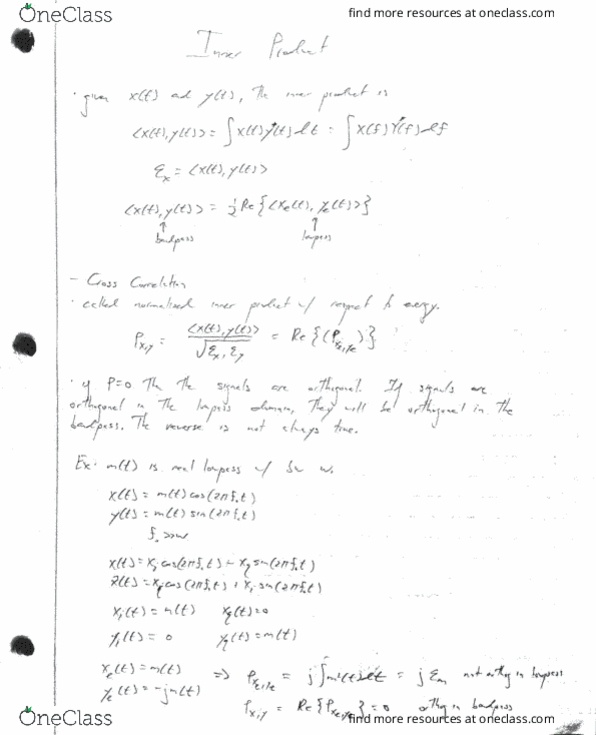 OneClass
find more resources at oneclass.com
Inner Product
· given x(t) and y(t), The inner product is
<x(t), y(t)> = ∫x(t)y*(t)dt = ∫X(f)Y*(f)df
Ɛx = <x(t), y(t)>
<x(t), y(t)> = ½Re{<xe(t), ye(t)>}
↑ ↑
bandpass lowpass
- Cross Correlation
· called normalized inner product w/ respect to energy.
ρx,y = <x(t), y(t)> / √Ɛx, Ɛy = Re{(ρxe,ye)}
· if ρ=0 Th The signals are orthogonal. If signals are
orthogonal in The lowpass domain, They will be orthogonal in the
bandpass. The reverse is not always true.
Ex. m(t) is real lowpass w/ w.
x(t) = m(t)cos(2πf.t)
y(t) = m(t)sin(2πf.t)
f. >>w
x(t) = xi cos(2πf.t) - xq sin(2πf.t)
x̂(t) = xq cos(2πf.t) + xi sin(2πf.t)
xi(t) = m(t) xq(t) = 0
yi(t) = 0 yq(t) = m(t)
xe(t) = m(t) => ρxe,ye = j∫m²(t)dt = jƐm not orthog in lowpass
ye(t) = -jm(t)
ρx,y = Re{ρxe,ye} = 0 orthog in bandpass
OneClass
find more resources at oneclass.com